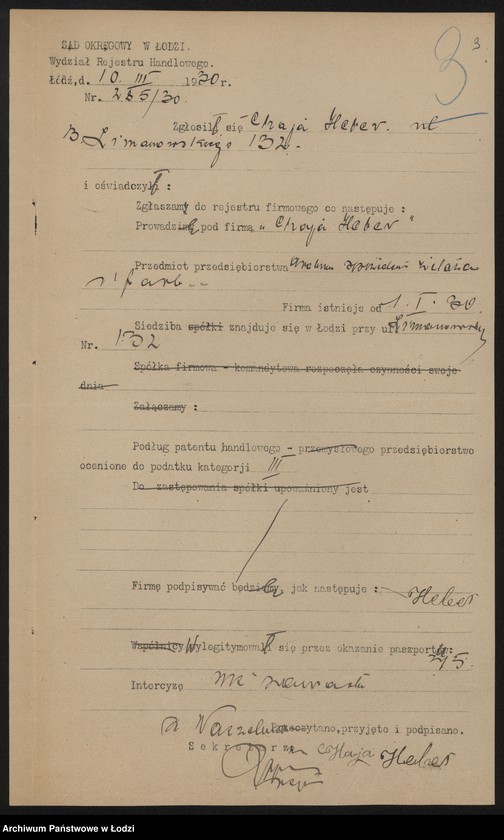 SĄD OKRĘGOWY W ŁODZI.
3.
Wydział Rejestru Handlowego.
3
Łódź,d. 10. III 1930 r.
Nr. 255/30.
Zgłosił się Chaja Heber. ul
B. Limanowskiego 132.
i oświadczył :
Zgłaszam do rejestru firmowego co następuje :
Prowadzi pod firmą „Chaja Heber"
Przedmiot przedsiębiorstwa drobna sprzedaż żelaza
i farb --
Firma istnieje od 1. I. 30.
Siedziba spółki znajduje się w Łodzi przy ul. Limanowskiego
Nr. 132
Spółka firmowa - komandytowa rozpoczęła czynności swoje
dnia
Załączamy :
Podług patentu handlowego - przemysłowego przedsiębiorstwo
ocenione do podatku kategorji III
Do zastępowania spółki upoważniony jest
Firmę podpisywać będzie, jak następuje :
Heber
Wspólnicy Wylegitymował się przez okazanie paszportu:
Intercyzę nie zawarła
Przeczytano,przyjęto i podpisano.
Sekretarz Chaja Heber
Archiwum Państwowe w Łodzi